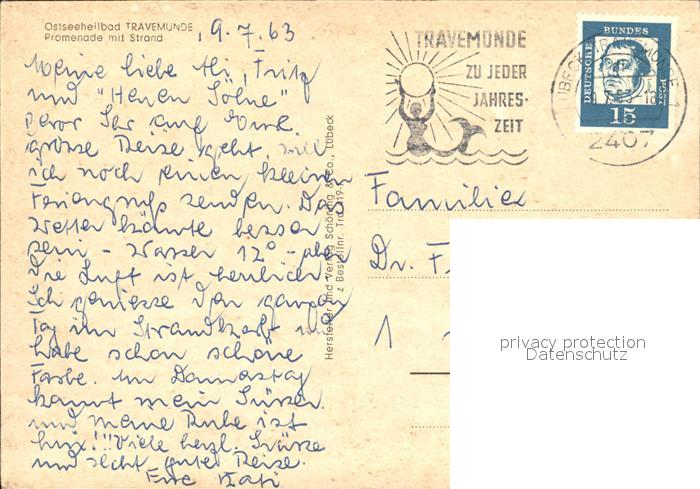 Ostseeheilbad TRAVEMÜNDE
Promenade mit Strand
19.7.63
Meine liebe Mi, Fritz
und "Herren Söhne"
bevor Ihr auf Eure
grosse Reise geht, will
ich noch einen kleinen
Feriengruss senden. Das
Wetter könnte besser
sein - Wasser 12° - aber
die Luft ist herrlich.
Ich geniesse den ganzen
Tag im Strandkorb und
habe schon schöne
Farbe. Am Donnerstag
kommt mein
und meine Ruhe ist
hin!!! Viele herzl. Grüsse
und recht gute Reise.
Eure Kati
Hersteller und Verlag Schöning & Co., Lübeck
Bestellnr.
TRAVEMÜNDE
ZU JEDER
JAHRES-
ZEIT
DEUTSCHE BUNDESPOST
15
LÜBECK-TRAVEMÜNDE 1
2407
Familie
Dr. F
1
privacy protection
Datenschutz